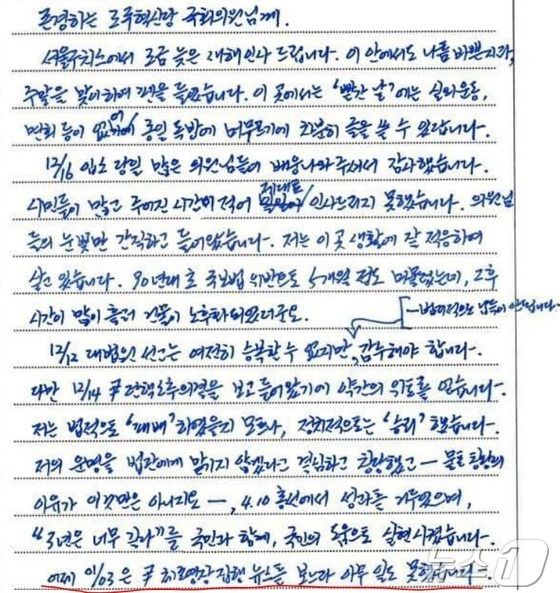 존경하는 조국혁신당 국회의원님께.
서울구치소에서 조금 늦은 새해인사 드립니다. 이 안에서도 나름 바쁜지라,
주말을 맞이하여 펜을 들었습니다. 이 곳에서는 '빨간 날'에는 실외운동,
면회 등이 없어 종일 독방에 머무르기에 차분히 글을 쓸 수 있답니다.
12/16 입소 당일 많은 의원님들이 배웅나와주셔서 감사했습니다.
시민들이 많고 주어진 시간이 적어 제대로 인사드리지 못했습니다. 의원님
들의 눈빛만 간직하고 들어왔습니다. 저는 이 곳 생활에 잘 적응하여
살고 있습니다. 90년대 초 국보법 위반으로 5개월 정도 머물렀는데, 그 후
시간이 많이 흘러 건물이 노후화되었더군요.
12/12 대법원 선고는 여전히 승복할 수 없지만, 감수해야 합니다.
다만 12/14 尹 탄핵소추의결을 보고 들어왔기에 약간의 위로를 얻습니다.
저는 법적으로 '패배'하였을지 모르나, 정치적으로는 '승리'했습니다.
저의 운명을 법관에게 맡기지 않겠다고 결심하고 창당했고 — 물론 창당의
이유가 이것만은 아니지요 —, 4.10 총선에서 성과를 거두었으며,
"3년은 너무 길다"를 국민과 함께, 국민의 도움으로 실현시켰습니다.
어제 1/03은 尹 체포영장 집행 뉴스를 보느라 아무 일도 못했습니다.
뉴스1